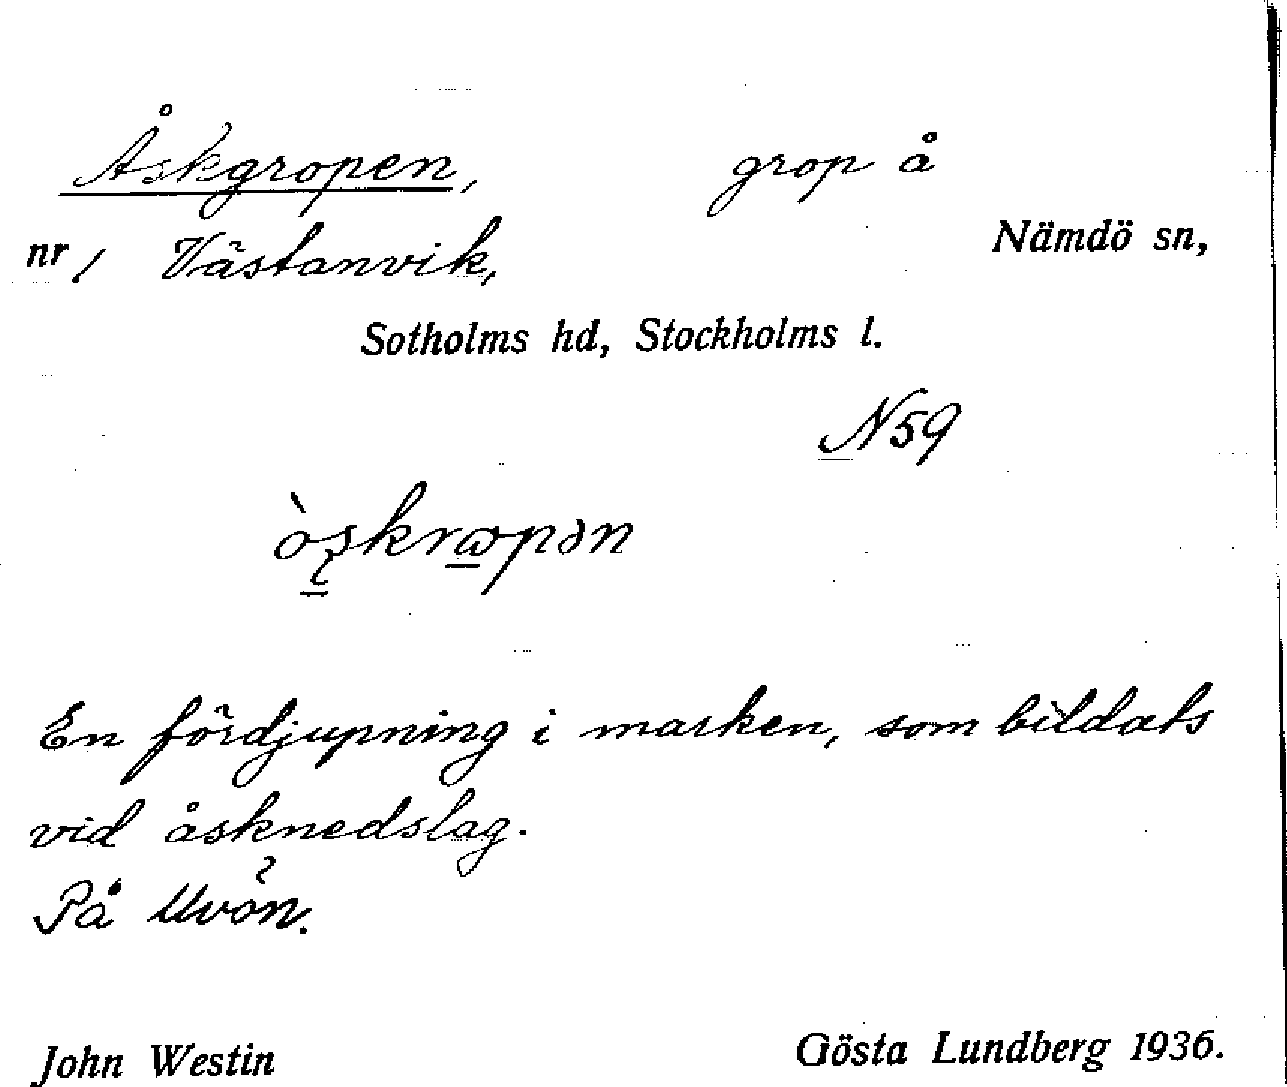 Åskgropen, grop å
nr 1 Västanvik, Nämdö sn,
Sotholms hd, Stockholms l.
N59
En fördjupning i marken, som bildats
vid åsknedslag.
På Uvön.
John Westin Gösta Lundberg 1936.